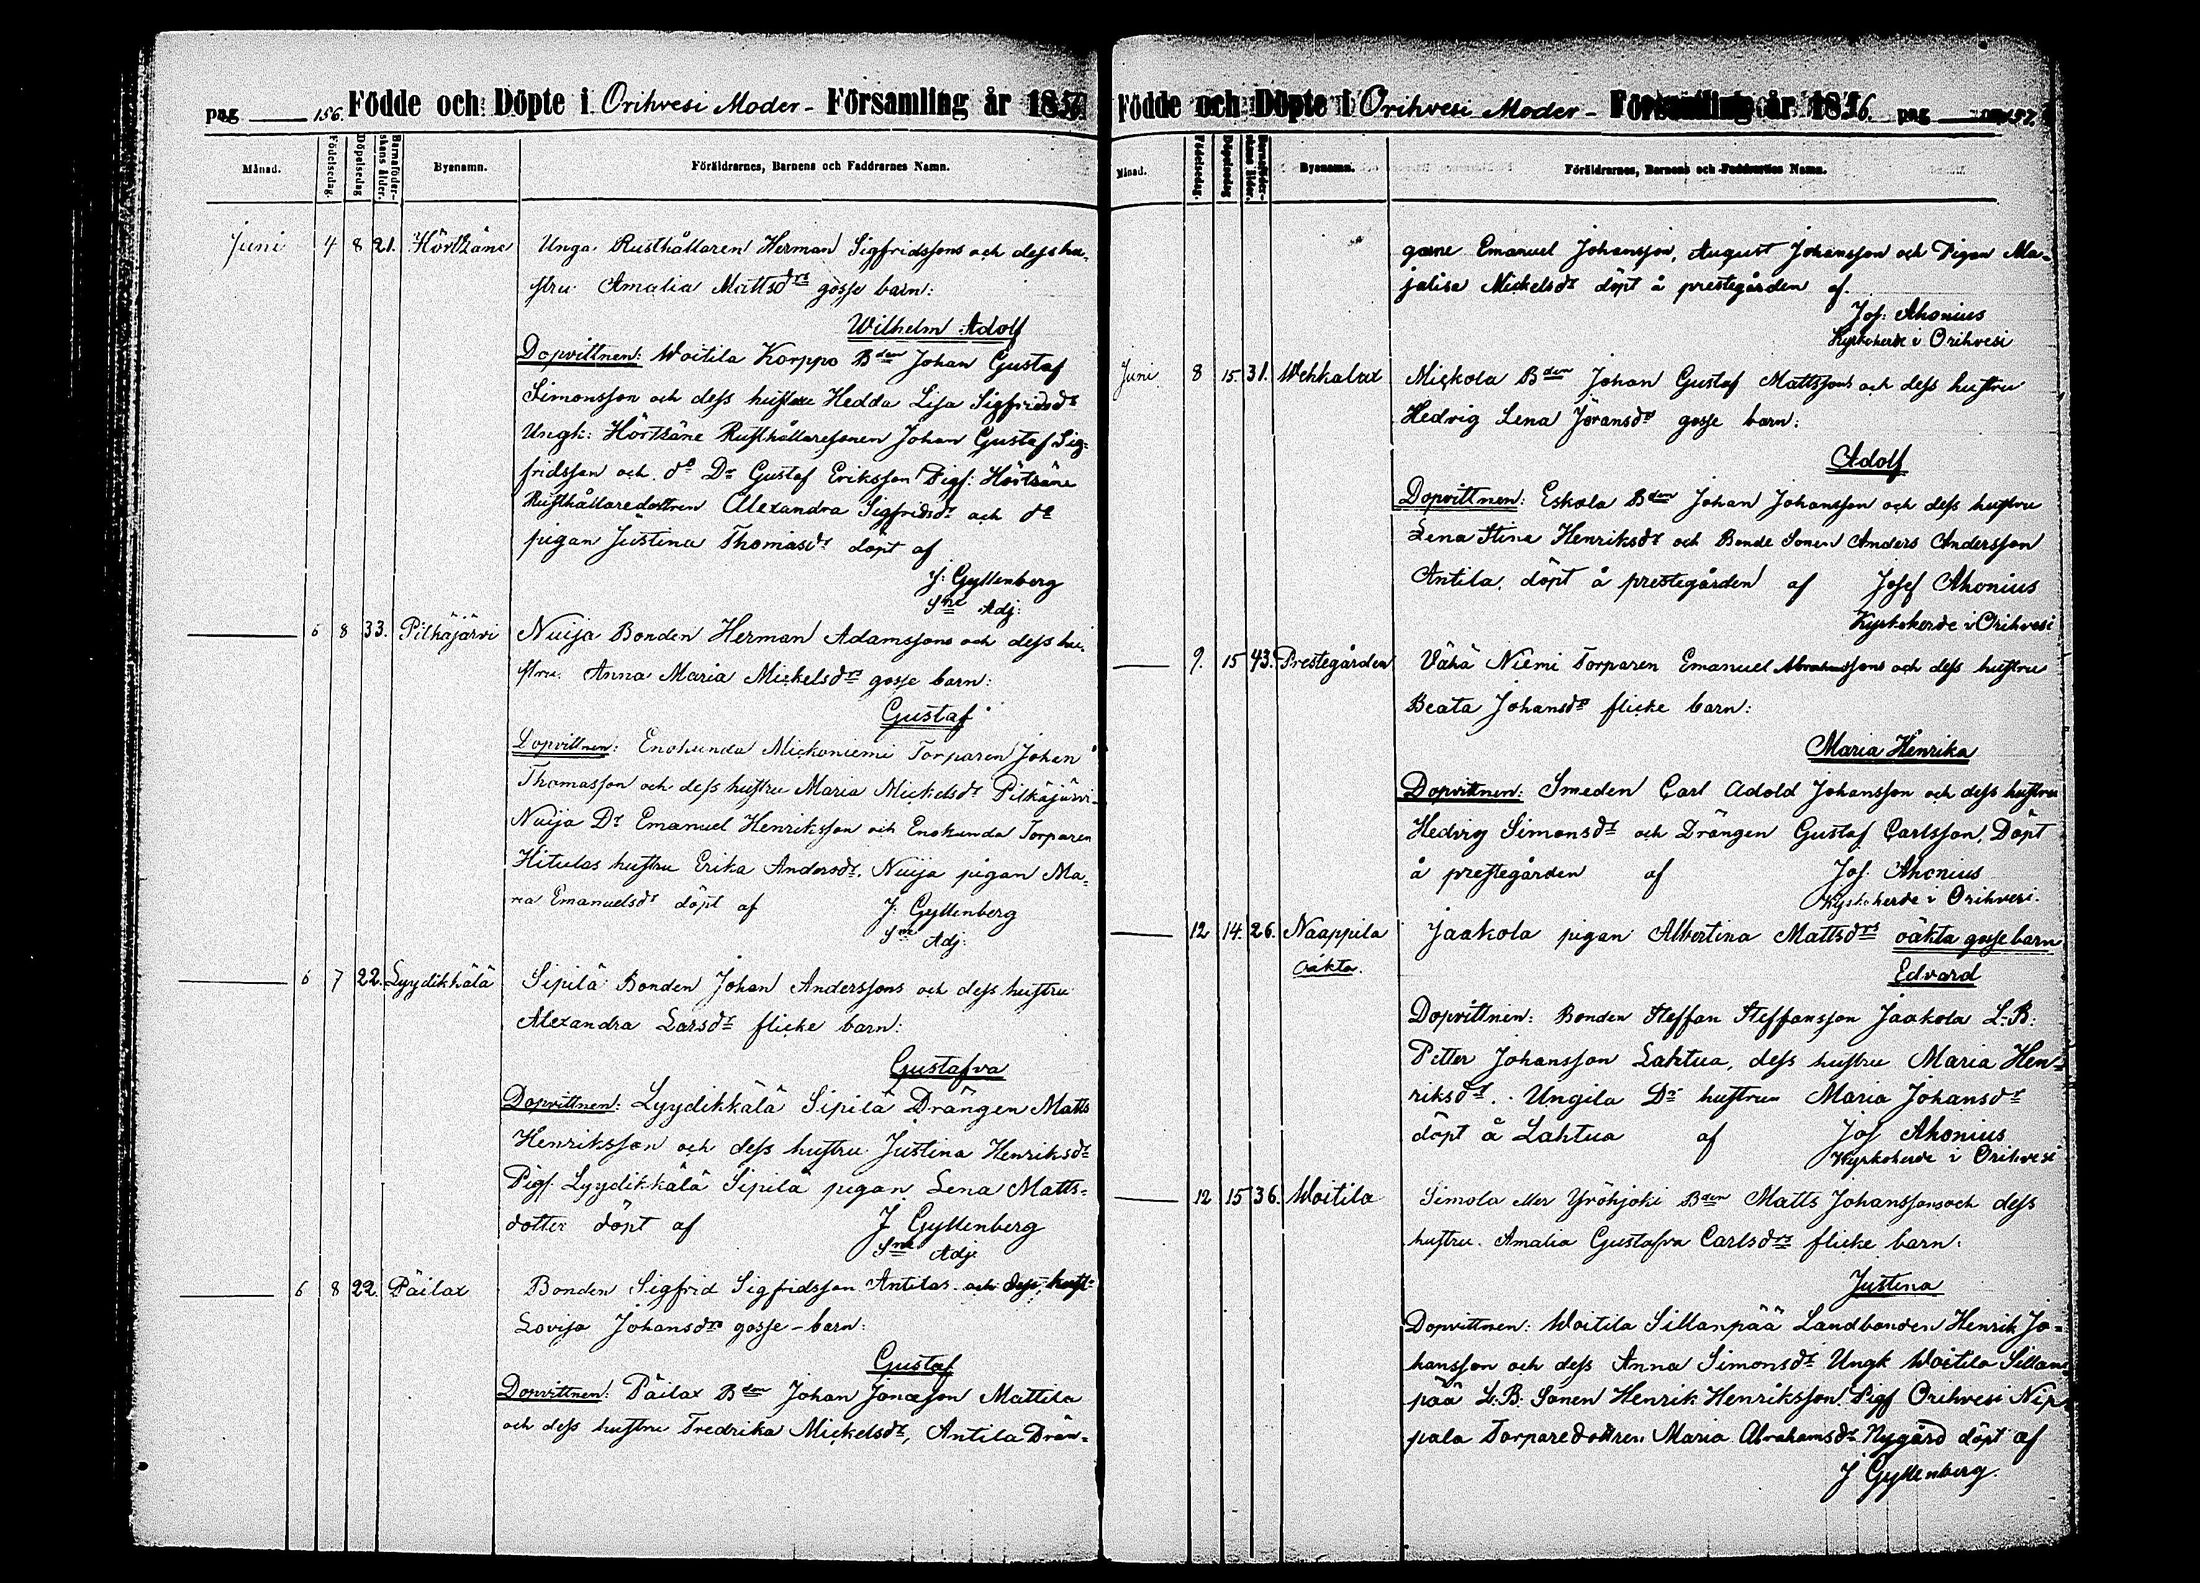 pag 156. Födde och Döpte i Orihvesi Moder- Församling år 1857
Månad. Födelsedag. Döpelsedag Barnaföderskans ålder. Bysnamn. Föräldrarnes, Barnens och Faddrarnes Namn.
Juni 4 8 21. Hörtsäne Unga Rusthållaren Herman Sigfridssons och dess hu-
stru Amalia Mattsdrs gosse barn:
Wilhelm Adolf
Dopvittnen: Woitila Korppo Bden Johan Gustaf
Simonsson och dess hustru Hedda Lisa Sigfridsdr
Ungk: Hörtsäne Rusthållaresonen Johan Gustaf Sig-
fridsson och do Dr Gustaf Eriksson Pigs: Hörtsäne
Rusthållaredottren Alexandra Sigfridsdr och do
pigan Justina Thomasdr döpt af
J: Gyllenberg
Sne Adj:
6 8 33. Pitkäjärvi Nuija Bonden Herman Adamssons och dess hu-
stru Anna Maria Mickelsdrs gosse barn:
Gustaf
Dopvittnen: Enokunda Mickoniemi Torparen Johan
Thomasson och dess hustru Maria Mickelsdr Pitkäjärvi
Nuija Dr Emanuel Henriksson och Enokunda Torparen
Hitulas hustru Erika Andersdr. Nuija pigan Ma-
ria Emanuelsdr döpt af J: Gyllenberg
Sne Adj:
6 7 22. Lyydikkälä Sipilä Bonden Johan Anderssons och dess hustru
Alexandra Larsdr flicke barn:
Gustafva
Dopvittnen: Lyydikkälä Sipilä Drängen Matts
Henriksson och dess hustru Justina Henriksdr
Pigs. Lyydikkälä Sipilä pigan Lena Matts-
dotter döpt af J Gyllenberg
Sne Adj:
6 8 22 Päilax Bonden Sigfrid Sigfridsson Antilas och dess hust-
Lovisa Johansdrs gosse-barn:
Gustaf
Dopvittnen: Päilax Bden Johan Jonasson Mattila
och dess hustru Fredrika Mickelsdr, Antila Drän-
Födde och Döpte i Orihvesi Moder- Församling år 1856. pag 157.
Månad. Födelsedag. Döpelsedag Barnaföderskans ålder. Bysnamn. Föräldrarnes, Barnens och Faddrarnes Namn.
garne Emanuel Johansson, August Johansson och Pigan Ma-
jalisa Mickelsdr döpt å prestegården af.
Jos: Ahonius
Kyrkoherde i Orihvesi
Juni 8 15. 31. Wehkalax Mickola Bden Johan Gustaf Mattssons och dess hustru
Hedvig Lena Jöransdr gosse barn:
Adolf
Dopvittnen: Eskola Bden Johan Johansson och dess hustru
Lena Stina Henriksdr och Bonde Sonen Anders Andersson
Antila, döpt å prestegården af Josef Ahonius
Kyrkoherde i Orihvesi
9. 15 43. Prestegården Vähä Niemi Torparen Emanuel Abrahamssons och dess hustru
Beata Johansdr flicke barn:
Maria Henrika
Dopvittnen: Smeden Carl Adold Johansson och dess hustru
Hedvig Simonsdr och Drängen Gustaf Carlsson, Döpt
å prestegården af Jos: Ahonius
Kyrkoherde i Orihvesi.
12 14. 26. Naappila Jaakola pigan Albertina Mattsdrs oäkta gosse barn
Oäkta. Edvard
Dopvittnen: Bonden Steffan Steffansson Jaakola L.B:
Petter Johansson Lahtua, dess hustru Maria Hen-
riksdr. Ungila Dr hustrun Maria Johansdr
döpt å Lahtua af Jos Ahonius
Kyrkoherde i Orihvesi
12 15 36. Woitila Simola eller Yröhjoki Bden Matts Johanssons och dess
hustru Amalia Gustafva Carlsdrs flicke barn:
Justina
Dopvittnen: Woitila Sillanpää Landbonden Henrik Jo-
hansson och dess Anna Simonsdr Ungk Woitila Sillan-
pää L:B: Sonen Henrik Henriksson Pigs Orihvesi Nip-
pala Torparedottren Maria Abrahamsdr Nygård döpt af
J Gyllenberg.